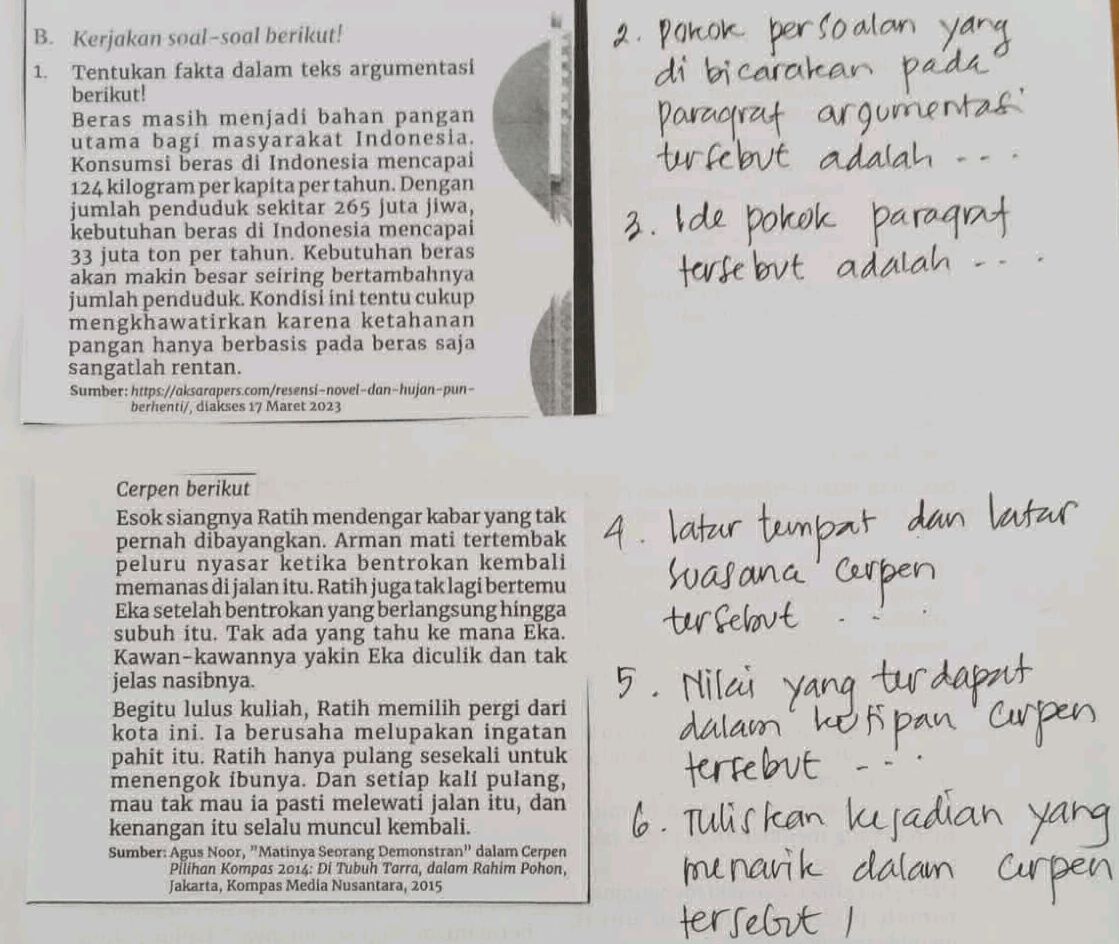 B. Kerjakan soal-soal berikut!
1. Tentukan fakta dalam teks argumentasi
berikut!
Beras masih menjadi bahan pangan
utama bagi masyarakat Indonesia.
Konsumsi beras di Indonesia mencapai
124 kilogram per kapita per tahun. Dengan
jumlah penduduk sekitar 265 juta jiwa,
kebutuhan beras di Indonesia mencapai
33 juta ton per tahun. Kebutuhan beras
akan makin besar seiring bertambahnya
jumlah penduduk. Kondisi ini tentu cukup
mengkhawatirkan karena ketahanan
pangan hanya berbasis pada beras saja
sangatlah rentan.
Sumber: https://aksarapers.com/resensi-novel-dan-hujan-pun-
berhenti/, diakses 17 Maret 2023
2. Pokok persoalan yang
di bicarakan pada
paragraf argumentasi
tersebut adalah ...
3. Ide pokok paragraf
tersebut adalah ...
Cerpen berikut
Esok siangnya Ratih mendengar kabar yang tak
pernah dibayangkan. Arman mati tertembak
peluru nyasar ketika bentrokan kembali
memanas di jalan itu. Ratih juga tak lagi bertemu
Eka setelah bentrokan yang berlangsung hingga
subuh itu. Tak ada yang tahu ke mana Eka.
Kawan-kawannya yakin Eka diculik dan tak
jelas nasibnya.
Begitu lulus kuliah, Ratih memilih pergi dari
kota ini. Ia berusaha melupakan ingatan
pahit itu. Ratih hanya pulang sesekali untuk
menengok ibunya. Dan setiap kali pulang,
mau tak mau ia pasti melewati jalan itu, dan
kenangan itu selalu muncul kembali.
Sumber: Agus Noor, "Matinya Seorang Demonstran" dalam Cerpen
Pilihan Kompas 2014: Di Tubuh Tarra, dalam Rahim Pohon,
Jakarta, Kompas Media Nusantara, 2015
4. latar tempat dan latar
suasana cerpen
tersebut ...
5. Nilai yang terdapat
dalam kutipan cerpen
tersebut ...
6. Tuliskan kejadian yang
menarik dalam cerpen
tersebut !